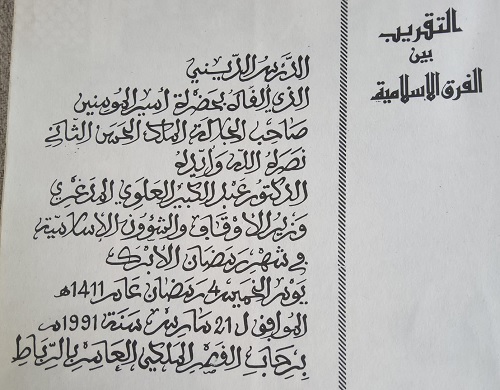 التقريب
بين
الفرق الاسلامية
الدرس الديني
الذي ألقاه بحضرة أمير المومنين
صاحب الجلالة الملك الحسن الثاني
نصره الله وأيده
الدكتور عبد الكبير العلوي المدغري
وزير الاوقاف والشؤون الاسلامية
في شهر رمضان الأبرك
يوم الخميس 4 رمضان عام 1411هـ
الموافق ل 21 مارس سنة 1991م
برحاب القصر الملكي العامر بالرباط